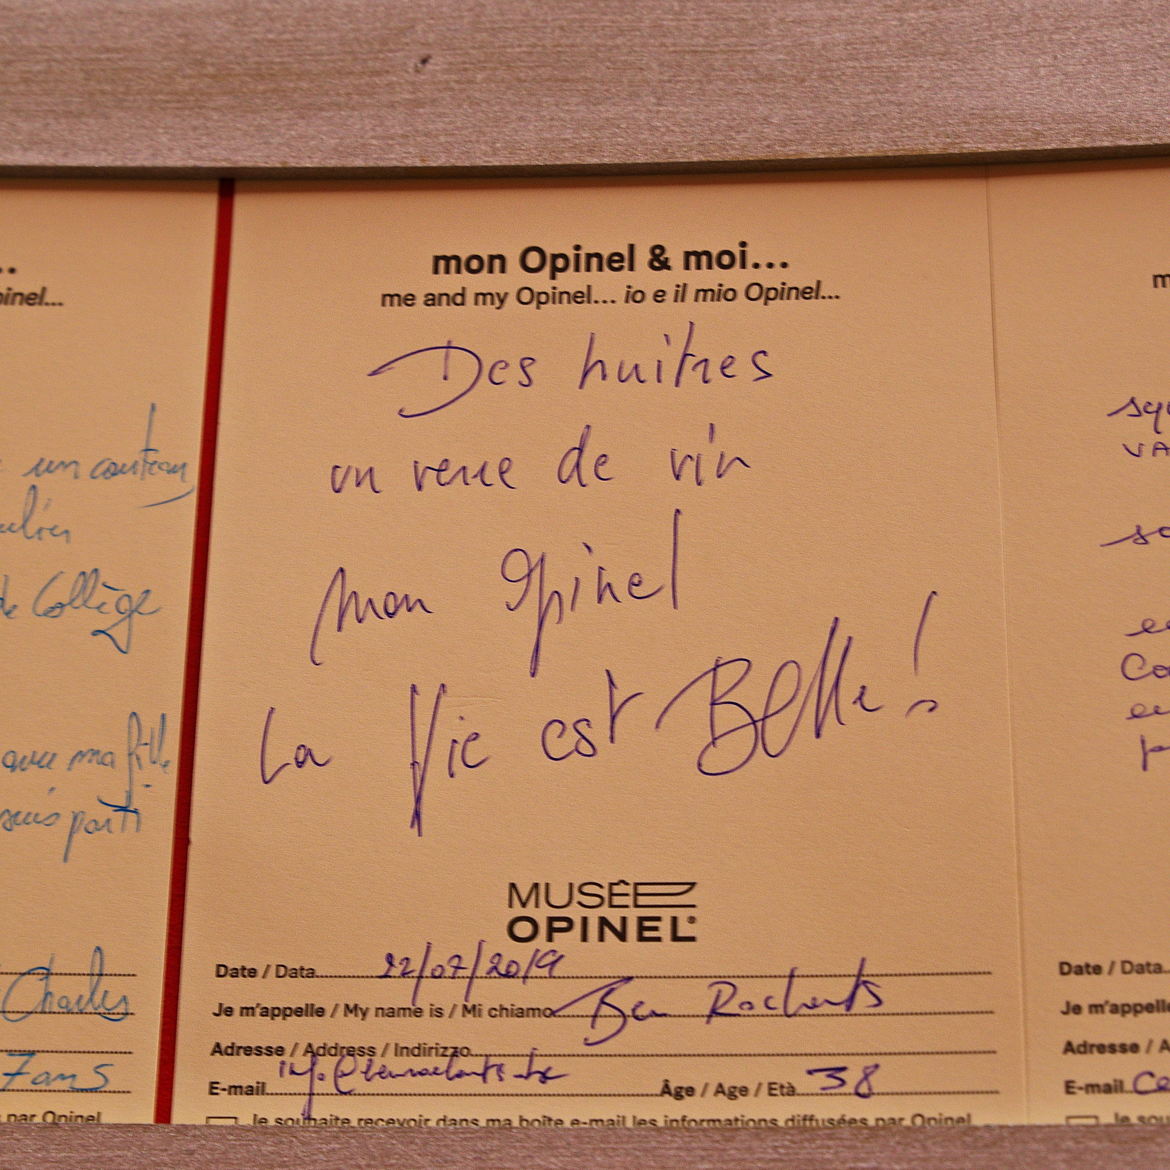 ..
pinel...
un couteau
de Collège
que ma fille
suis parti
Charles
7 ans
par Opinel
mon Opinel & moi...
me and my Opinel... io e il mio Opinel...
Des huitres
un verre de vin
mon Opinel
La Vie est Belle!
MUSÉE
OPINEL
Date / Data 22/07/2019
Je m'appelle / My name is / Mi chiamo Ben
Adresse / Address / Indirizzo
E-mail Âge / Age / Età 38
Je souhaite recevoir dans ma boîte e-mail les informations diffusées par Opinel
m
squ
VA
so
Co
Date / Data
Je m'appelle
Adresse / A
E-mail
Je sou